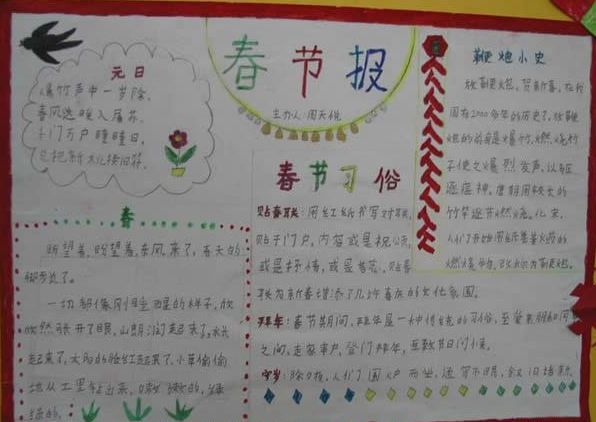 春节报
主办人:周天悦
元日
爆竹声中一岁除,
春风送暖入屠苏。
千门万户曈曈日,
总把新桃换旧符。
春
盼望着,盼望着,东风来了,春天的
脚步近了。
一切都像刚睡醒的样子,欣
欣然张开了眼,山朗润起来了,水长
起来了,太阳的脸红起来了,小草偷偷
地从土里钻出来,嫩嫩的,绿
绿的。
春节习俗
贴春联:用红纸书写对联,
贴于门户,内容或是祝福,
或是抒情,或是
联为新春增添了几分喜庆的文化氛围。
拜年:春节期间,拜年是一种传统的习俗,至爱亲朋和同
之间,走家串户,登门拜年,互致节日问候。
守岁:除夕夜,人们围炉而坐,通宵不寐,叙旧话新,
鞭炮小史
放鞭炮,贺新春,在我
国有2000多年的历史了,放鞭
炮的前身是爆竹,燃烧竹
子使之爆裂发声,以驱
逐瘟神,唐朝用较长的
竹竿逐节燃烧,后来
人们开始用纸卷着火药的
燃烧物,改称为鞭炮。